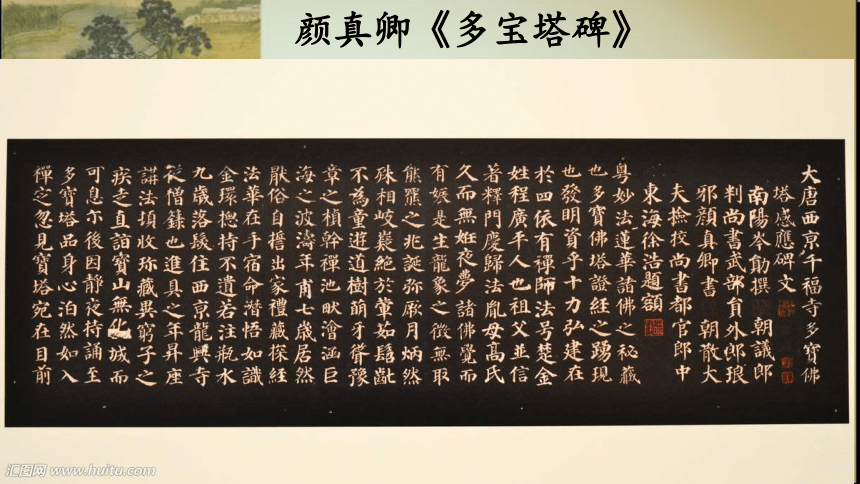 颜真卿《多宝塔碑》
大唐西京千福寺多寶佛
塔感應碑文
南陽岑勛撰 朝議郎
判尚書武部員外郎琅
邪顏真卿書 朝散大
夫撿挍尚書都官郎中
東海徐浩題額
粤妙法蓮華諸佛之秘藏
也多寶佛塔證經之踴現
也發明資乎十力弘建在
於四依有禪師法号楚金
姓程廣平人也祖父並信
著釋門慶歸法胤母高氏
久而無姙夜夢諸佛覺而
有娠是生龍象之徵無取
熊羆之兆誕弥厥月炳然
殊相岐嶷絕於葷茹髫齔
不為童遊道樹萌牙聳豫
章之楨幹禪池畎澮涵巨
海之波濤年甫七歲居然
猒俗自誓出家禮藏探經
法華在手宿命潛悟如識
金環揔持不遺若注瓶水
九歲落髮住西京龍興寺
從僧籙也進具之年昇座
講法頓收珍藏異窮子之
疾走直詣寶山無化城而
可息尒後因靜夜持誦至
多寶塔品身心泊然如入
禪定忽見寶塔宛在目前
汇图网 www.huitu.com